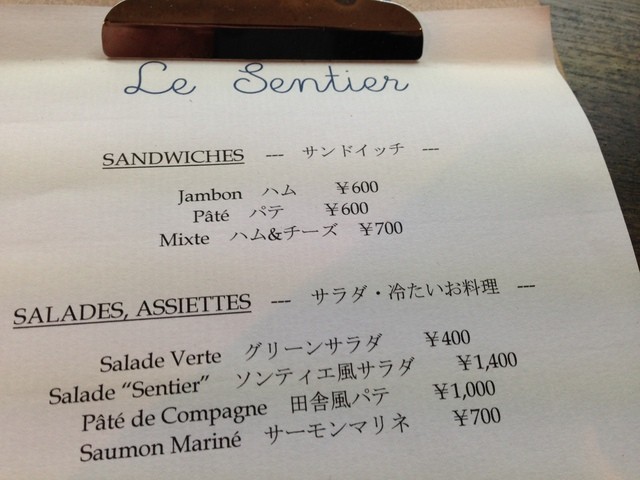 Le Sentier
SANDWICHES --- サンドイッチ ---
Jambon ハム ￥600
Pâté パテ ￥600
Mixte ハム&チーズ ￥700
SALADES, ASSIETTES --- サラダ・冷たいお料理 ---
Salade Verte グリーンサラダ ￥400
Salade “Sentier” ソンティエ風サラダ ￥1,400
Pâté de Compagne 田舎風パテ ￥1,000
Saumon Mariné サーモンマリネ ￥700